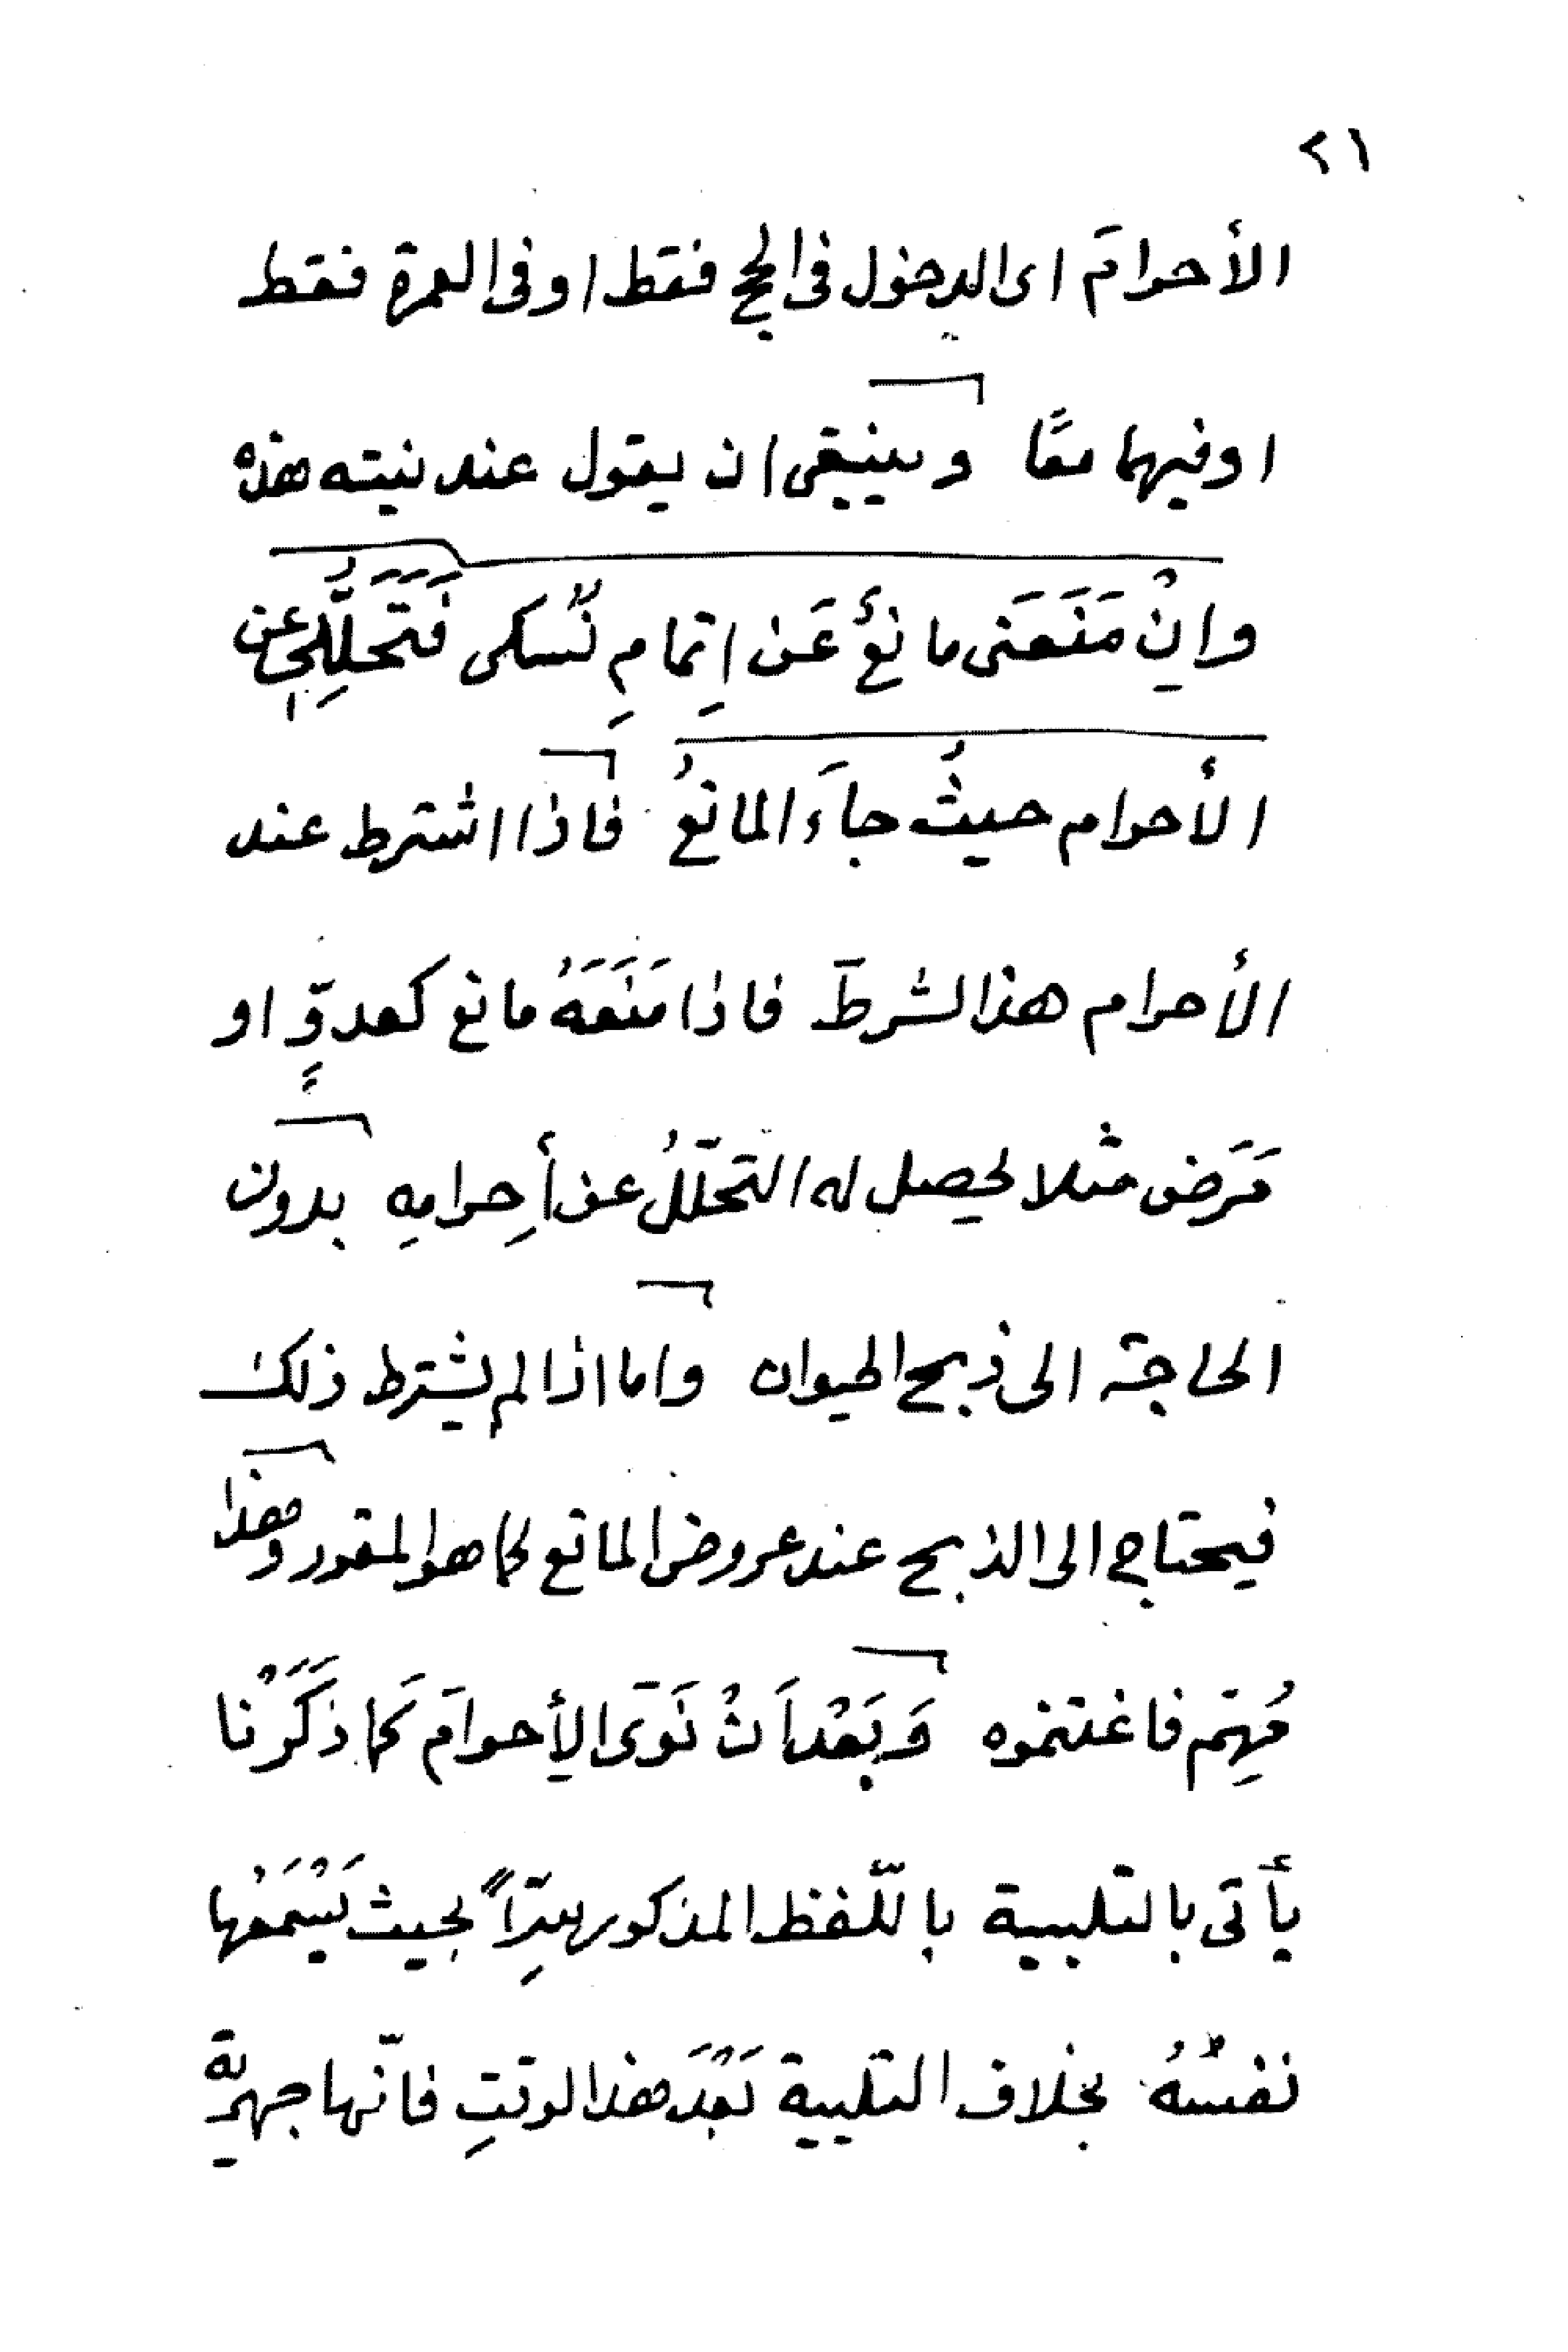 ٢١
الأحوامَ اى الدخول فى الحج فقط او فى العمرة فقط
او فيهما معًا وينبغى ان يقول عند نيته هذه
وانْ مَنَعَنى مانعٌ عَن اِتمامِ نُسكى فَتَحَلُّلِى عن
الأحرام حيثُ جاَء المانعُ فاذا اشترط عند
الأحرام هذا الشرطَ فاذا مَنَعَهُ مانع كعدوٍّ او
مَرَض مثلا يحصل له التحلّلُ عن أِحرامهِ بدون
الحاجة الى ذبح الحيوان واما اذا لم يشترط ذلك
فيحتاج الى الذبح عند عروض المانع كما هو المقرر وهذا
مُهِمّ فاغتنموه وَبَعْداَنْ نَوَى الأحرامَ كَما ذَكَرْنا
يأتى بالتلبية باللّفظ المذكور سِرّاً بحيث يَسْمَعُها
نفسُهُ بخلاف التلبية بَعْدَ هذا الوقتِ فانّها جهريّة